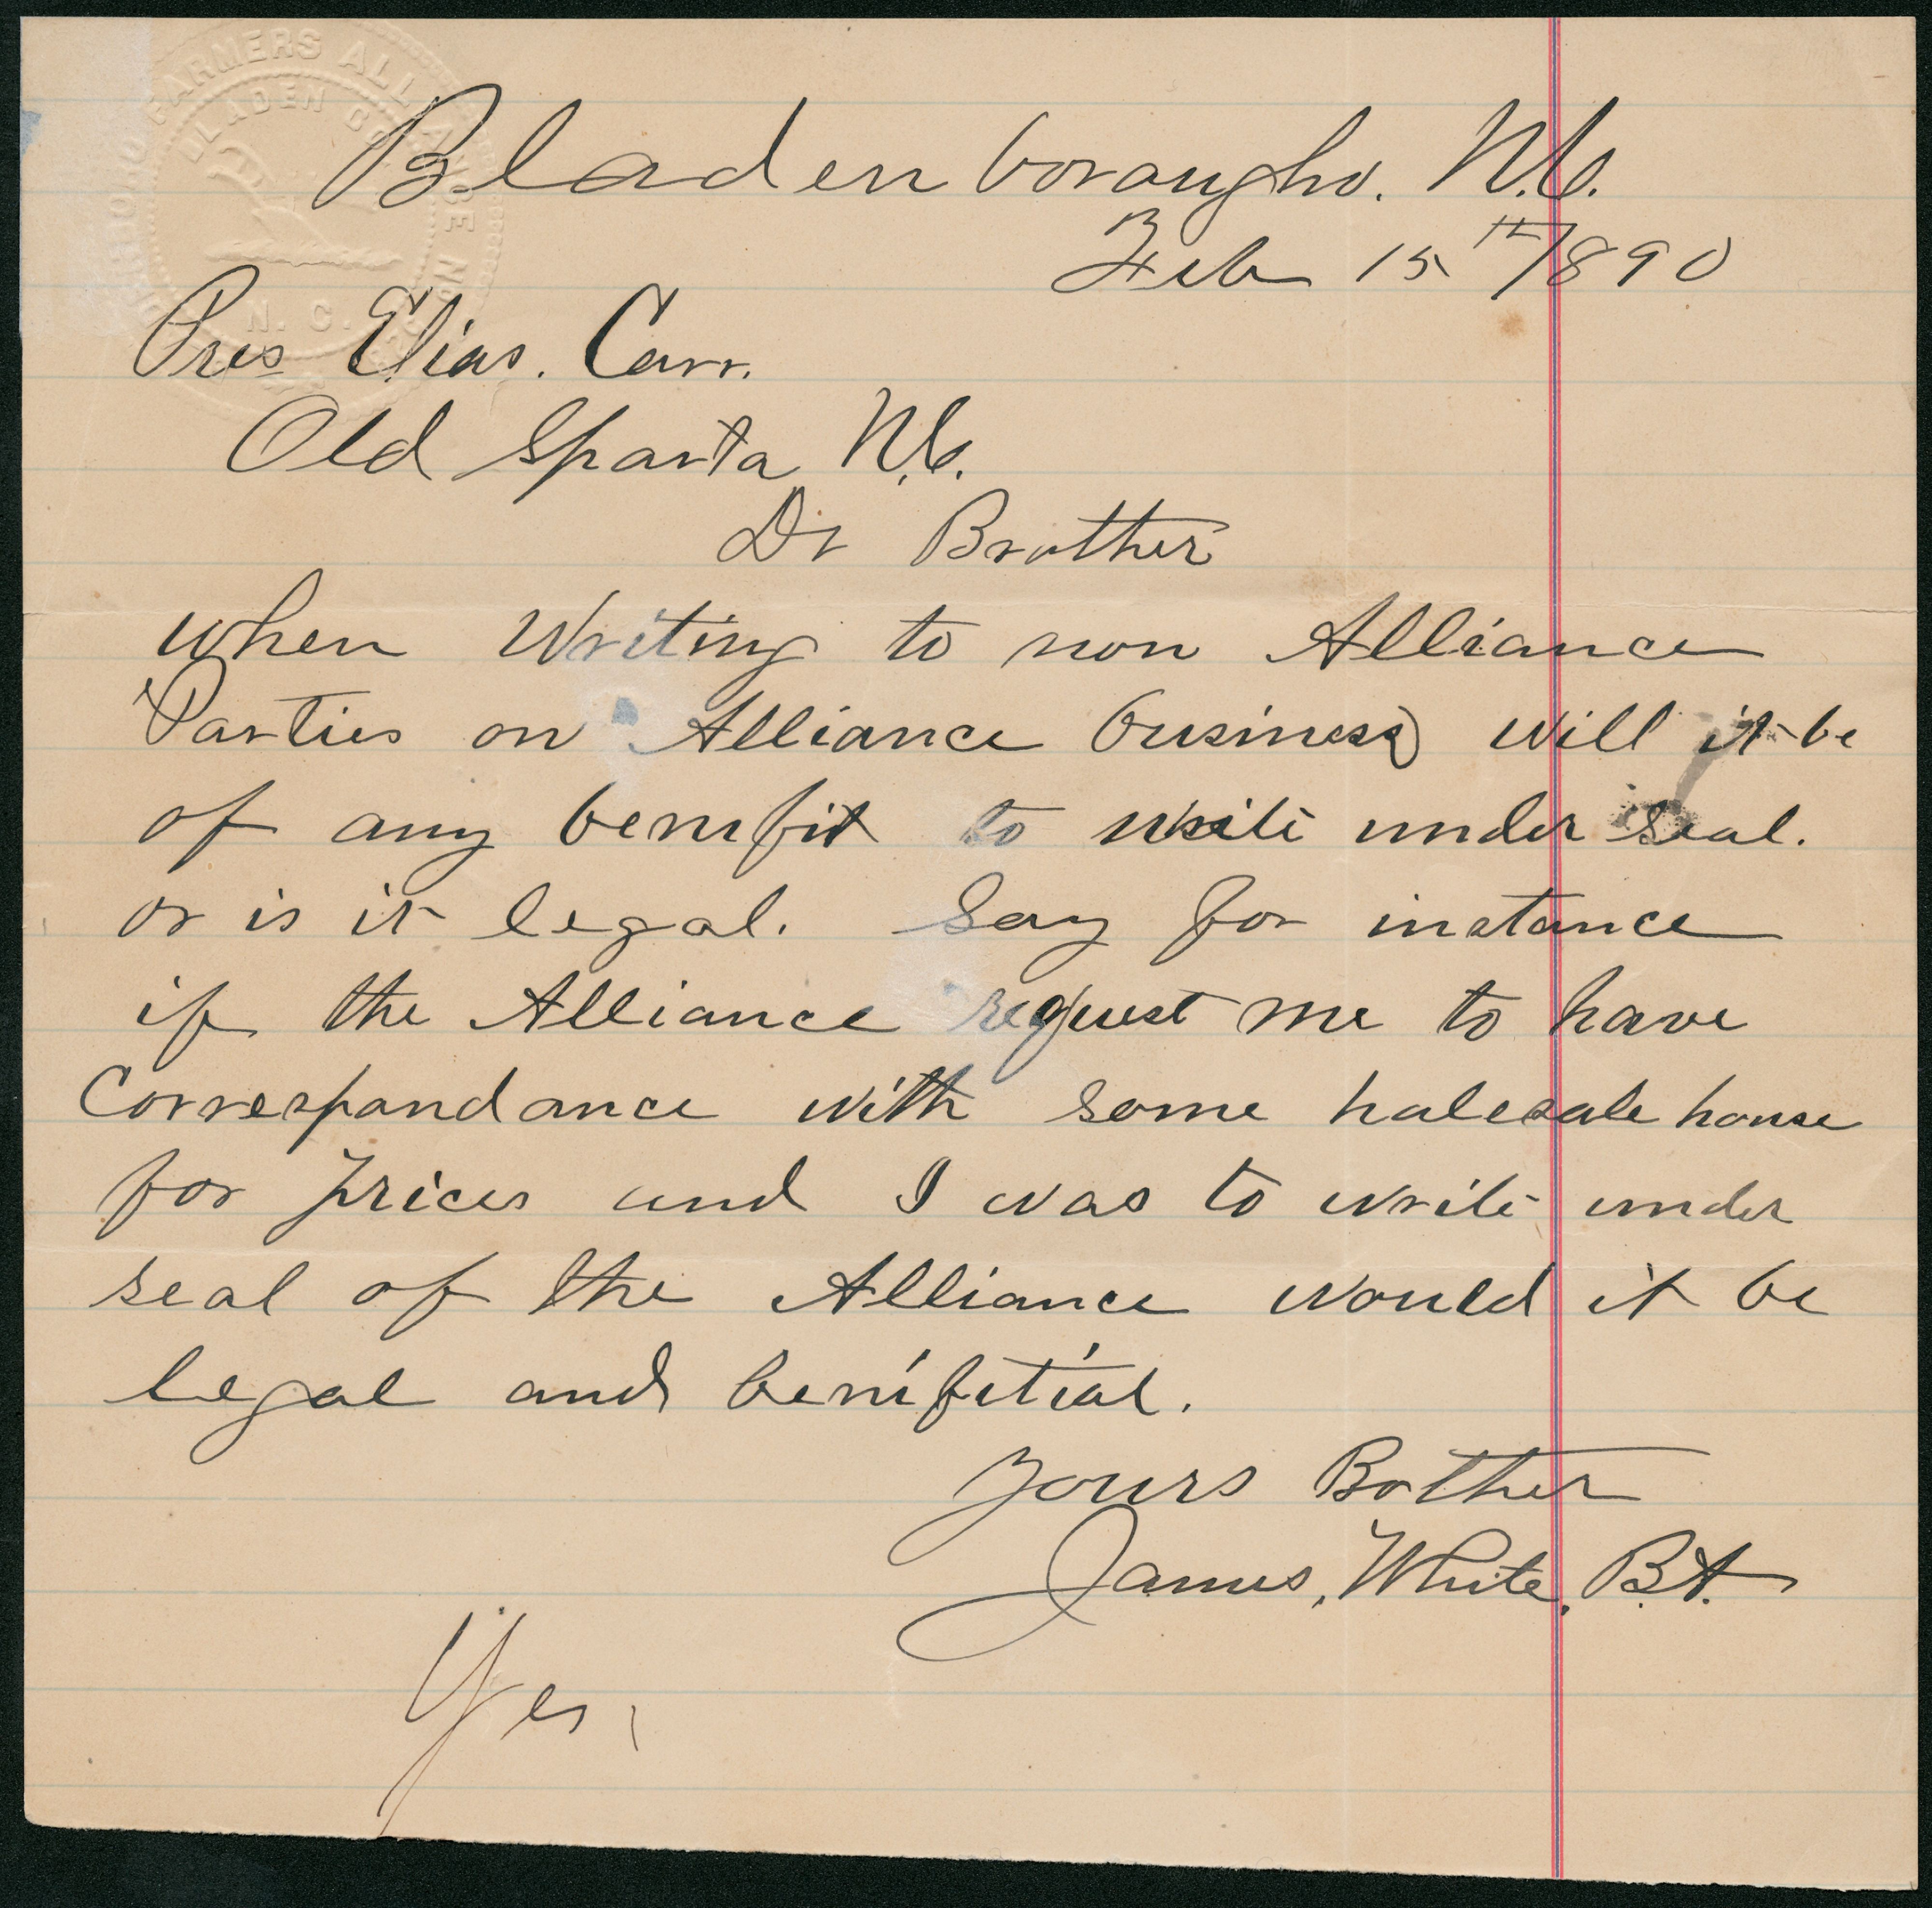 FARMERS ALLIANCE NO
BLADEN CO.
N. C.
Bladenboroough. N.C.
Feb 15th 1890
Pres Elias. Carr.
Old Sparta N.C.
Dr Brother
when Writing to non Alliance
Parties on Alliance business will it be
of any benifit to write under seal.
or is it legal. Say for instance
if the Alliance request me to have
Correspondance with some halesale house
for prices and I was to write under
seal of the Alliance would it be
legal and benifitial.
Yours Bother
James, White, B.A.
Yes,